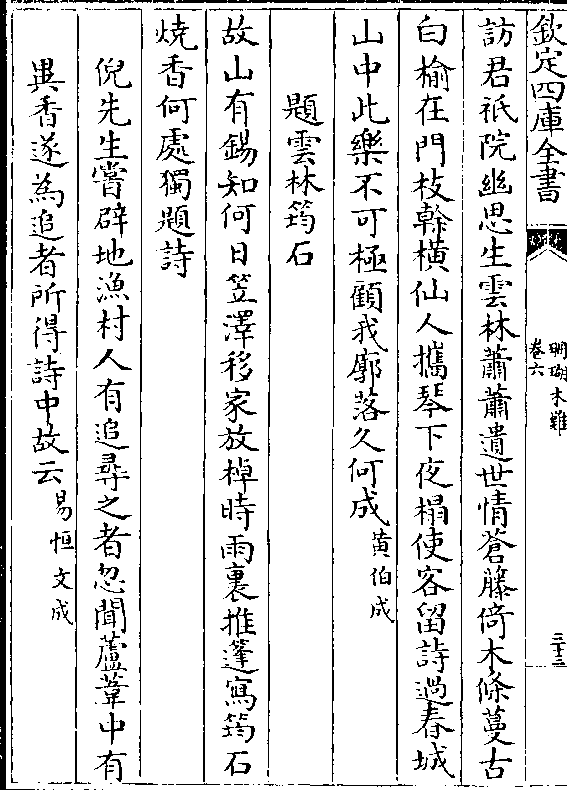 欽定四庫全書
珊瑚木難
卷六
三十三
訪君祇院幽思生雲林蕭蕭遺世情蒼藤倚木條蔓古
白榆在門枝幹橫仙人攜琴下夜榻使客留詩過春城
山中此樂不可極顧我廓落久何成黄伯成
題雲林筠石
故山有錫知何日笠澤移家放棹時雨裏推蓬寫筠石
燒香何處獨題詩
倪先生嘗辟地漁村人有追尋之者忽聞蘆葦中有
異香遂為追者所得詩中故云易恒文成